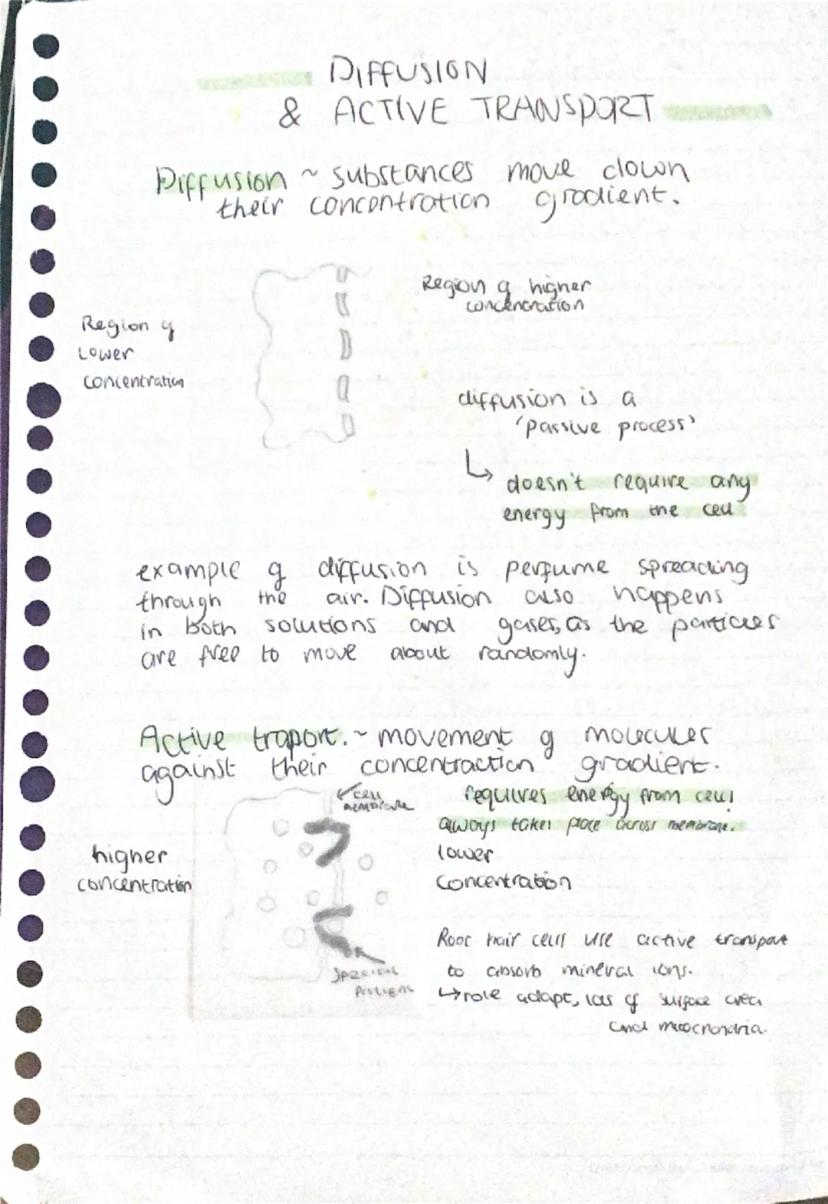 DIFFUSION
& ACTIVE TRANSPORT
Diffusion ~ substances move down
their concentration gradient.
Region of higher
concentration
Region of
lower
concentration
diffusion is a
'passive process'
↳ doesn't require any
energy from the cell
example of diffusion is perfume spreading
through the air. Diffusion also happens
in both solutions and gases, as the particles
are free to move about randomly.
Active traport. ~ movement of molecules
against their concentraction gradient.
cell
membrane
requires energy from cell!
always takes place across membrane.
higher
concentration
lower
concentration
Root hair cell use active transport
to absorb mineral ions.
↳ role adapt, lots of surface area
and
special
proteins